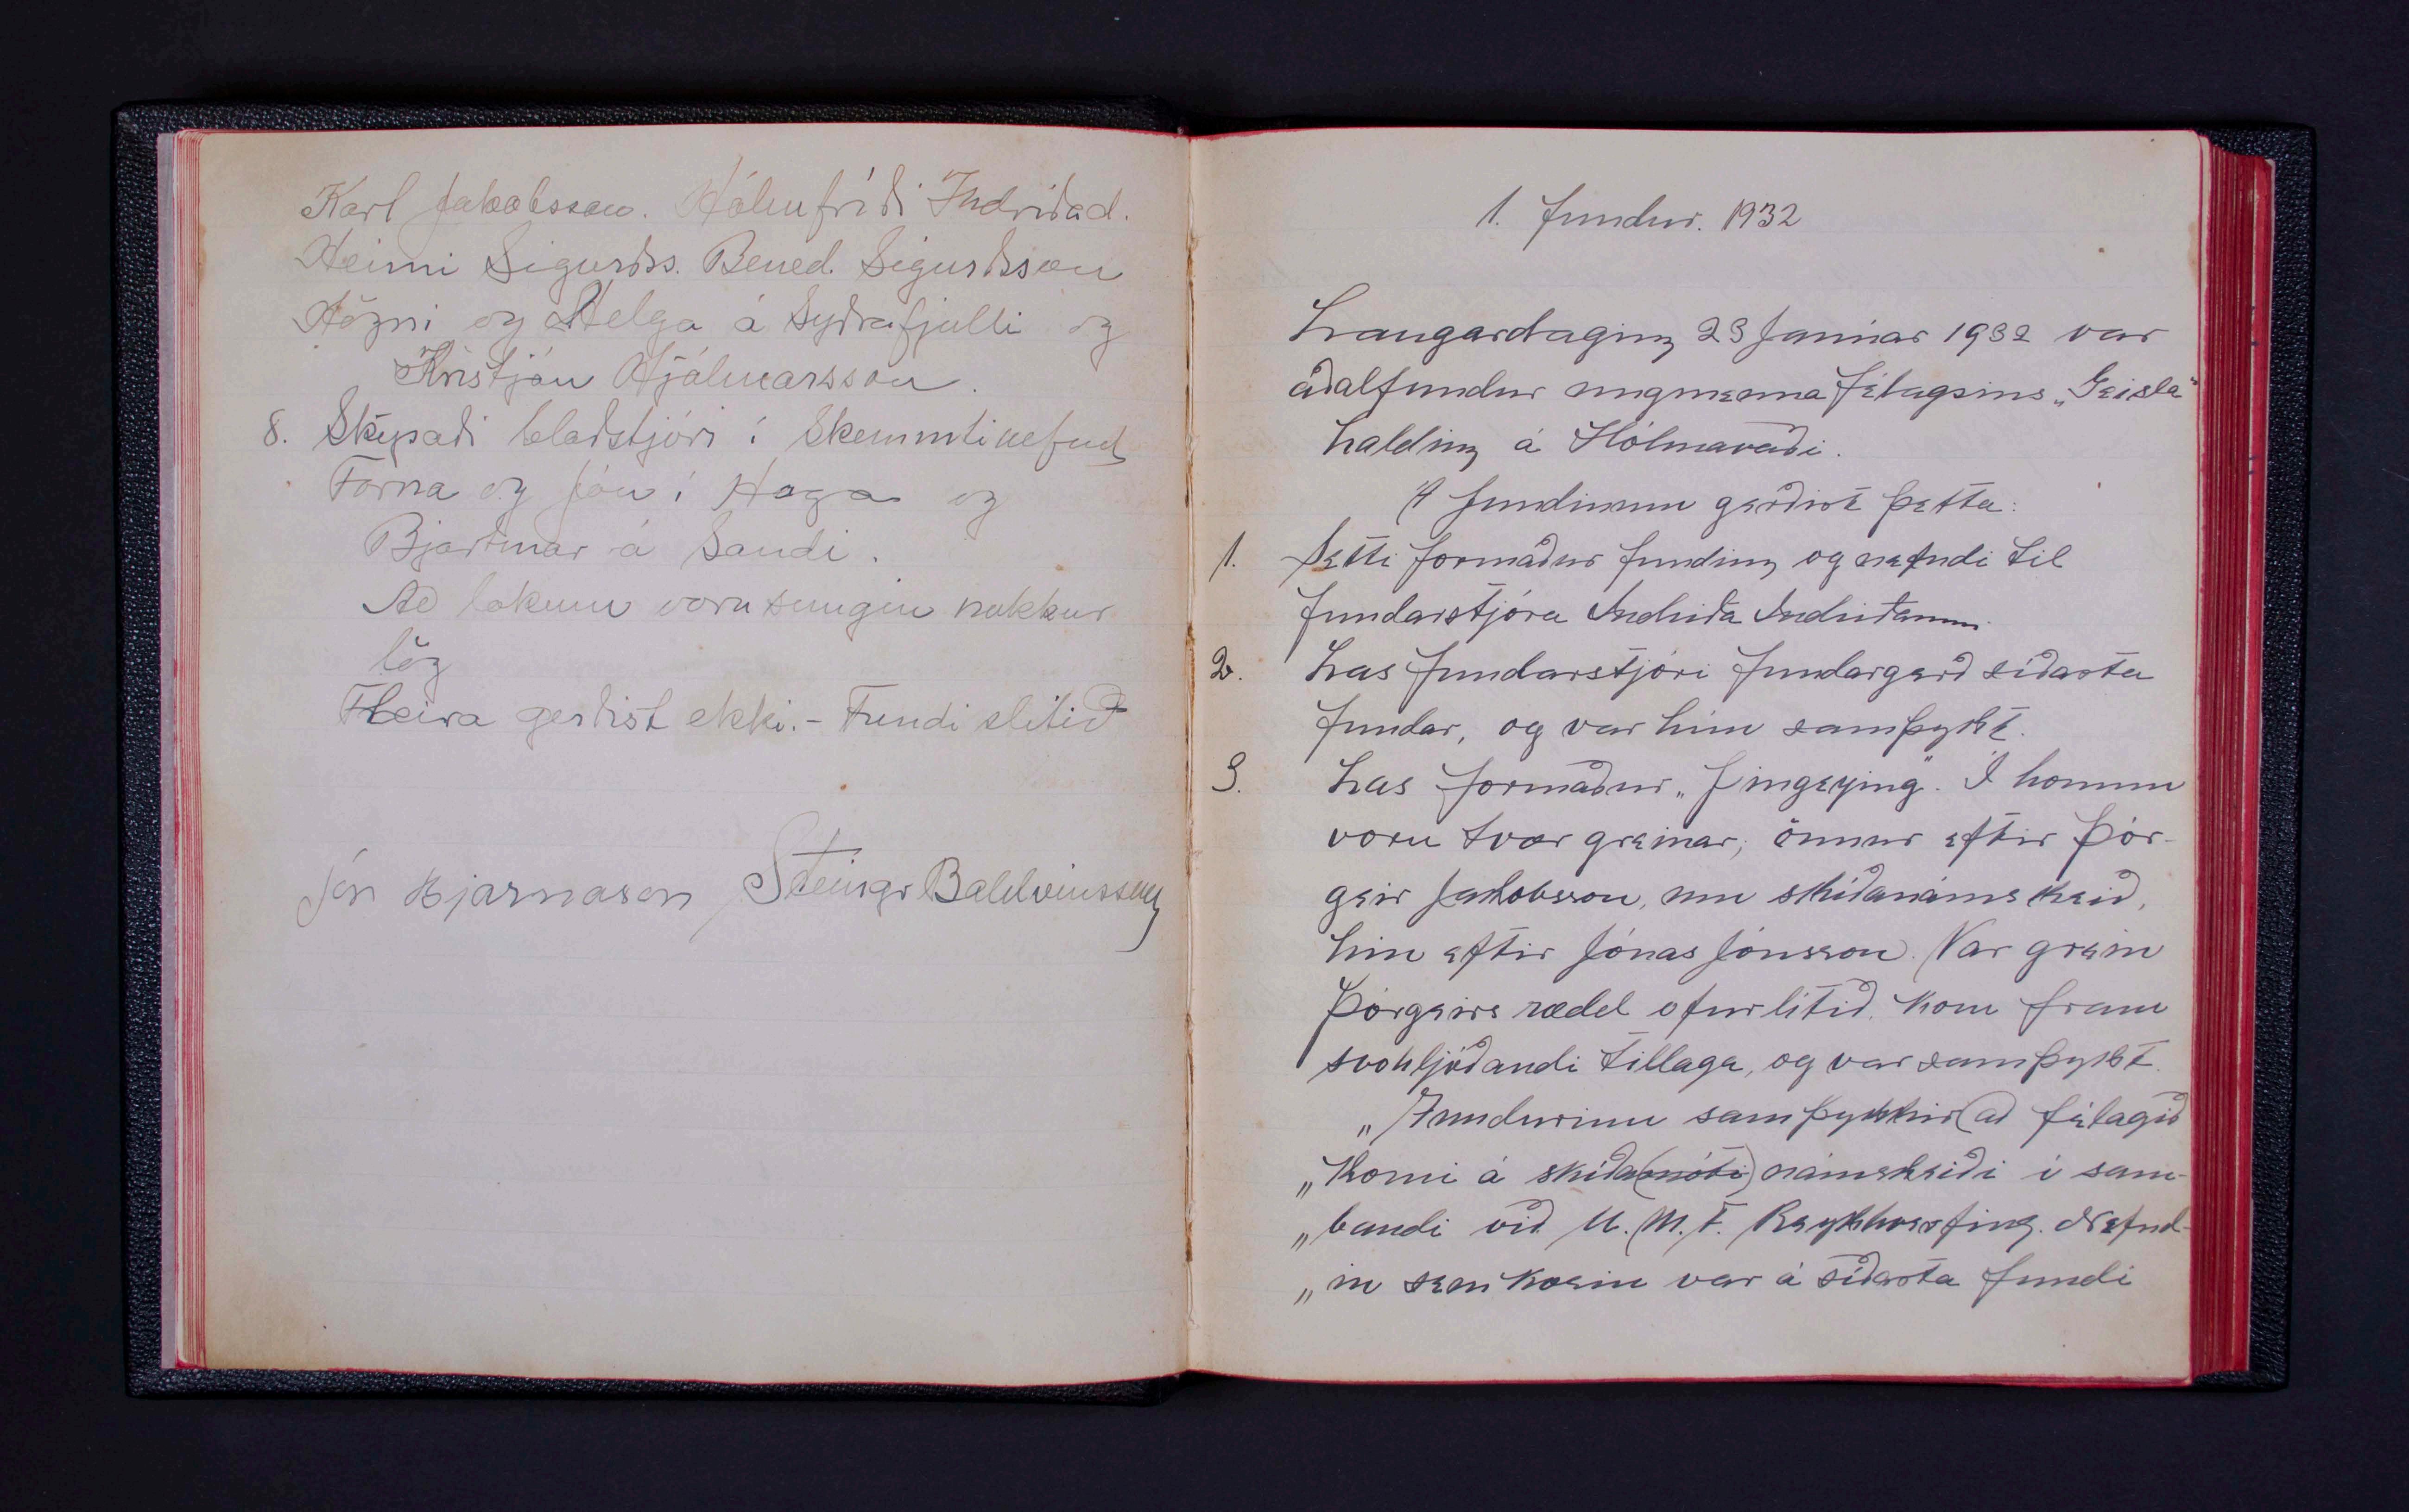 Karl Jakobsson. Hólmfríði Indriðad.
Heimi Sigurðss. Bened. Sigurðsson
Högni og Helga á Syðrafjalli og
Kristján Hjálmarsson.
8. Skipaði blaðstjóri í Skemmtinefnd
Forna og Jón í Haga og
Bjartmar á Sandi.
Að lokum voru sungin nokkur
lög
Fleira gerðist ekki. - Fundi slitið
Jón Bjarnason Steingr Baldvinsson
1. fundur. 1932
Laugardaginn 23 Janúar 1932 var
aðalfundur ungmennafélagsins „Geisla"
haldinn á Hólmavaði.
Á fundinum gerðist þetta:
1. Setti formaður fundinn og nefndi til
fundarstjóra Indriða Indriðason.
2. Las fundarstjóri fundargerð síðasta
fundar, og var hún samþykt.
3. Las formaður „Þingeying". Í honum
voru tvær greinar; önnur eftir Þór-
geir Jakobsson, um skíðanámskeið,
hin eftir Jónas Jónsson. Var grein
Þórgeirs rædd ofurlítið. Kom fram
svohljóðandi tillaga, og var samþykt.
„Fundurinn samþykkir að félagið
„Komi á skíða(móti) námskeiði í sam-
„bandi við U.M.F. Reykhverfing. Nefnd-
„in sem kosin var á síðasta fundi